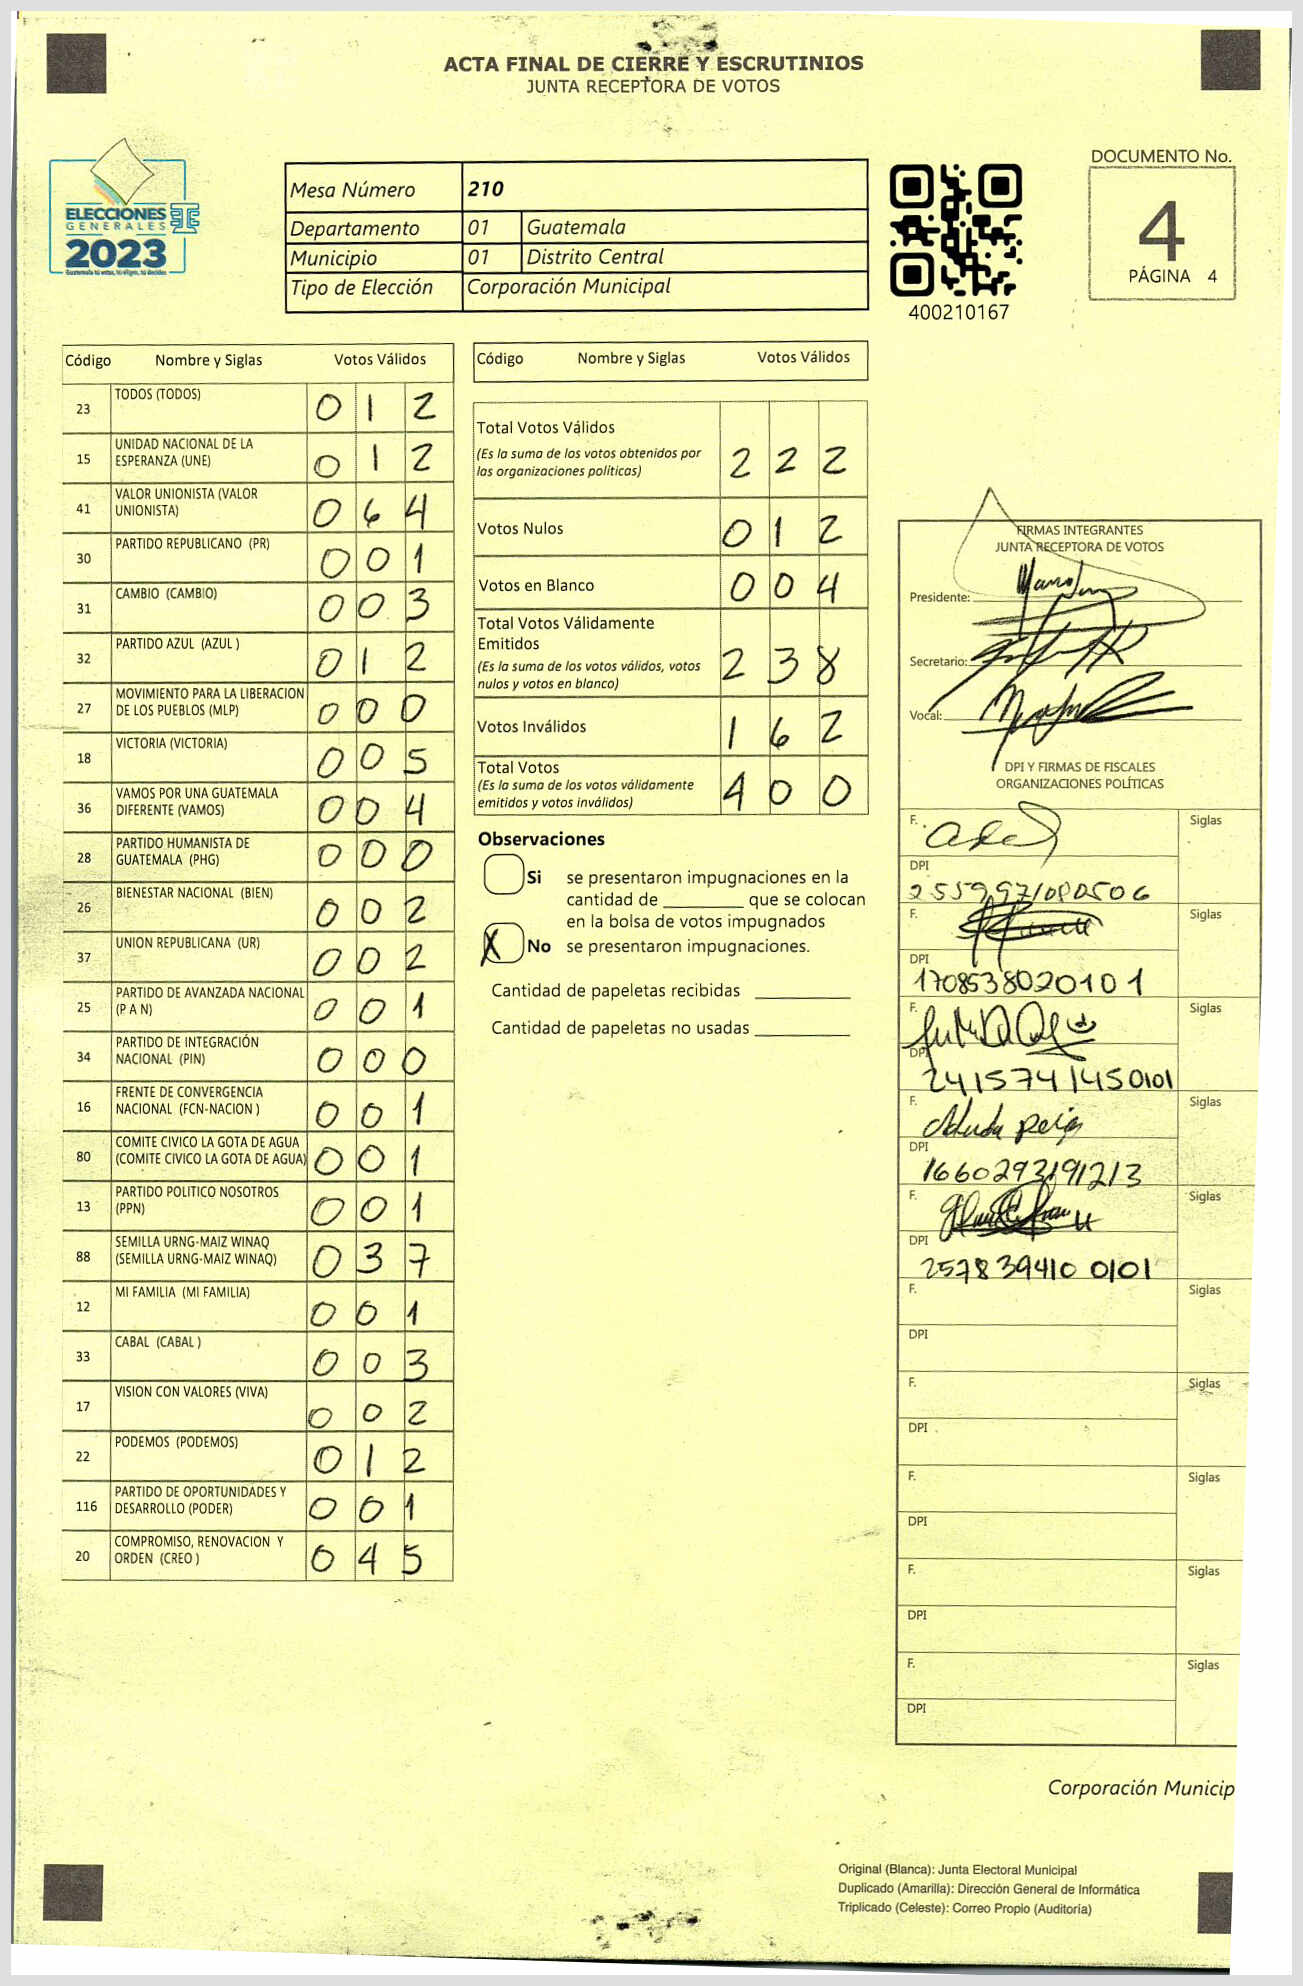 ACTA FINAL DE CIERRE Y ESCRUTINIOS
JUNTA RECEPTORA DE VOTOS
ELECCIONES
GENERALES
2023
Guatemala tú votas, tú eliges, tú decides
Mesa Número 210
Departamento 01 Guatemala
Municipio 01 Distrito Central
Tipo de Elección Corporación Municipal
400210167
DOCUMENTO No.
4
PÁGINA 4
Código Nombre y Siglas Votos Válidos
23 TODOS (TODOS) 0 1 2
15 UNIDAD NACIONAL DE LA
ESPERANZA (UNE) 0 1 2
41 VALOR UNIONISTA (VALOR
UNIONISTA) 0 6 4
30 PARTIDO REPUBLICANO (PR) 0 0 1
31 CAMBIO (CAMBIO) 0 0 3
32 PARTIDO AZUL (AZUL ) 0 1 2
27 MOVIMIENTO PARA LA LIBERACION
DE LOS PUEBLOS (MLP) 0 0 0
18 VICTORIA (VICTORIA) 0 0 5
36 VAMOS POR UNA GUATEMALA
DIFERENTE (VAMOS) 0 0 4
28 PARTIDO HUMANISTA DE
GUATEMALA (PHG) 0 0 0
26 BIENESTAR NACIONAL (BIEN) 0 0 2
37 UNION REPUBLICANA (UR) 0 0 2
25 PARTIDO DE AVANZADA NACIONAL
(P A N) 0 0 1
34 PARTIDO DE INTEGRACIÓN
NACIONAL (PIN) 0 0 0
16 FRENTE DE CONVERGENCIA
NACIONAL (FCN-NACION ) 0 0 1
80 COMITE CIVICO LA GOTA DE AGUA
(COMITE CIVICO LA GOTA DE AGUA) 0 0 1
13 PARTIDO POLITICO NOSOTROS
(PPN) 0 0 1
88 SEMILLA URNG-MAIZ WINAQ
(SEMILLA URNG-MAIZ WINAQ) 0 3 7
12 MI FAMILIA (MI FAMILIA) 0 0 1
33 CABAL (CABAL ) 0 0 3
17 VISION CON VALORES (VIVA) 0 0 2
22 PODEMOS (PODEMOS) 0 1 2
116 PARTIDO DE OPORTUNIDADES Y
DESARROLLO (PODER) 0 0 1
20 COMPROMISO, RENOVACION Y
ORDEN (CREO ) 0 4 5
Código Nombre y Siglas Votos Válidos
Total Votos Válidos
(Es la suma de los votos obtenidos por
las organizaciones políticas) 2 2 2
Votos Nulos 0 1 2
Votos en Blanco 0 0 4
Total Votos Válidamente
Emitidos
(Es la suma de los votos válidos, votos
nulos y votos en blanco) 2 3 8
Votos Inválidos 1 6 2
Total Votos
(Es la suma de los votos válidamente
emitidos y votos inválidos) 4 0 0
Observaciones
Si se presentaron impugnaciones en la
cantidad de ________ que se colocan
en la bolsa de votos impugnados
X No se presentaron impugnaciones.
Cantidad de papeletas recibidas
Cantidad de papeletas no usadas
FIRMAS INTEGRANTES
JUNTA RECEPTORA DE VOTOS
Presidente:
Secretario:
Vocal:
DPI Y FIRMAS DE FISCALES
ORGANIZACIONES POLÍTICAS
F. Siglas
DPI
F. Siglas
DPI
1708538020101
F. Siglas
DPI
2415741450101
F. Siglas
DPI
1660293191213
F. Siglas
DPI
2578394100101
F. Siglas
DPI
F. Siglas
DPI
F. Siglas
DPI
F. Siglas
DPI
F. Siglas
DPI
Corporación Municip
Original (Blanca): Junta Electoral Municipal
Duplicado (Amarilla): Dirección General de Informática
Triplicado (Celeste): Correo Propio (Auditoría)